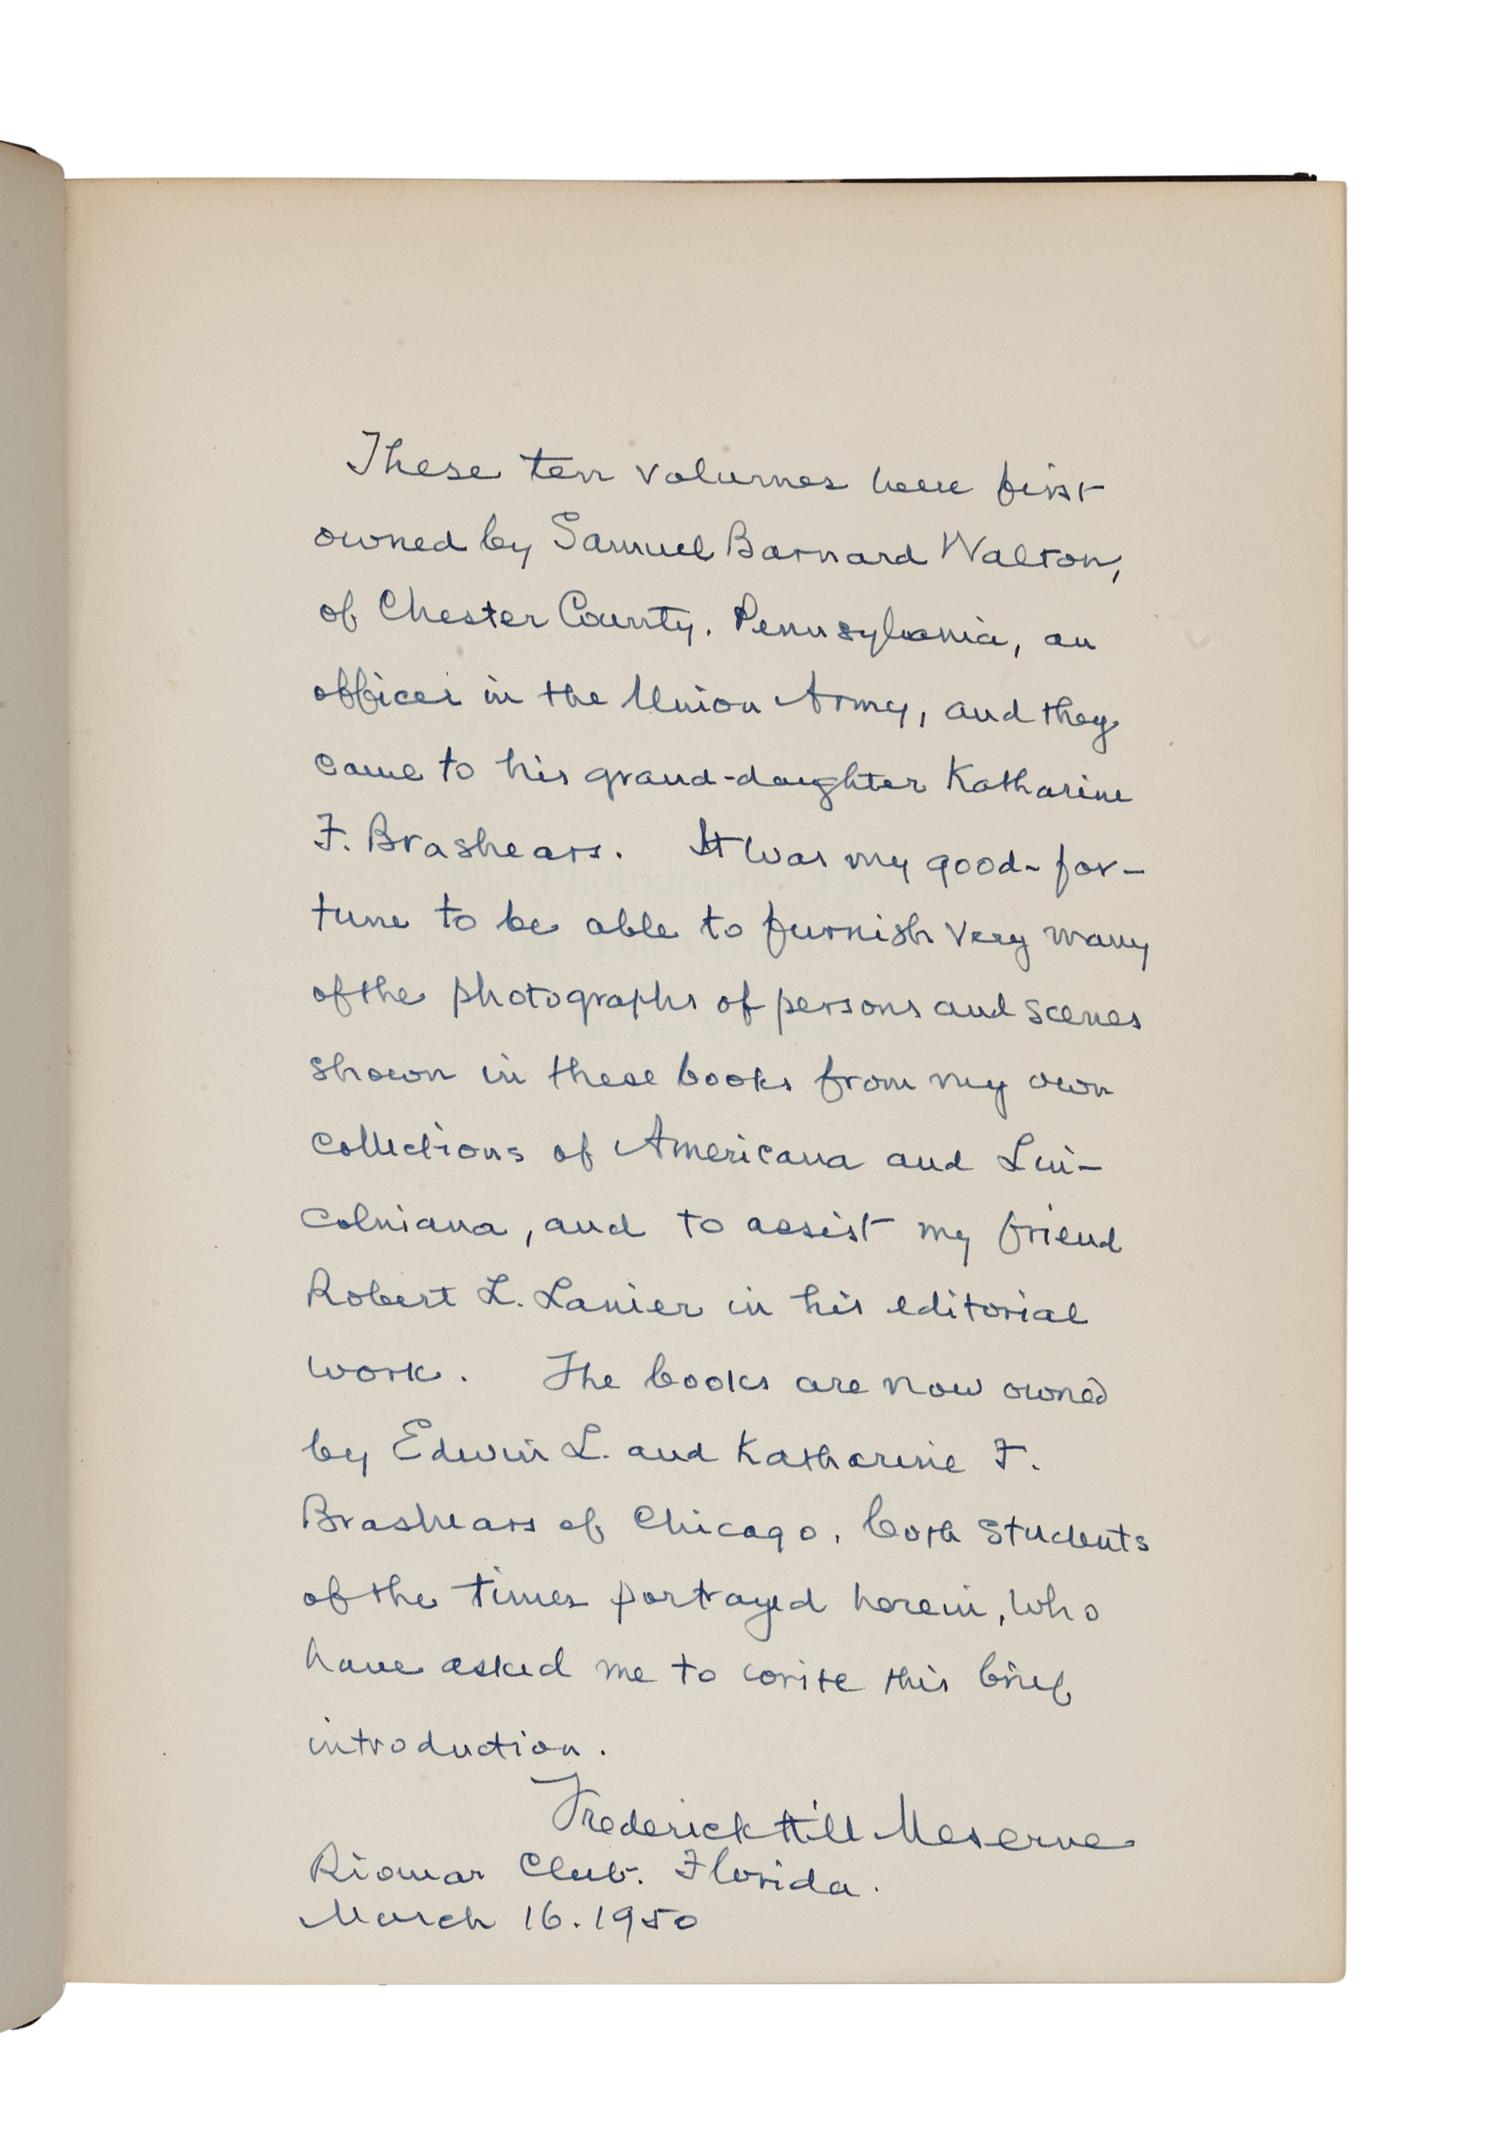 These ten volumes were first
owned by Samuel Barnard Walton,
of Chester County. Pennsylvania, an
officer in the Union Army, and they
came to his grand-daughter Katharine
F. Brashears. It was my good-for-
tune to be able to furnish very many
of the photographs of persons and scenes
shown in these books from my own
collections of Americana and Lin-
colniana, and to assist my friend
Robert L. Lanier in his editorial
work. The books are now owned
by Edwin L. and Katharine F.
Brashears of Chicago, both students
of the times portrayed herein, who
have asked me to write this brief
introduction.
Frederick Hill Meserve
Riomar Club. Florida.
March 16. 1950